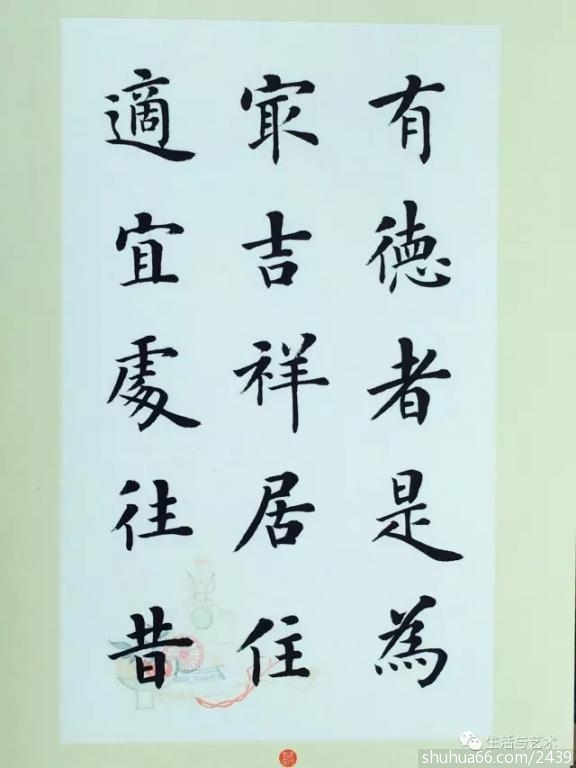 有德者是為
冣吉祥居住
適宜處往昔
生活与艺术
shuhua66.com/2439